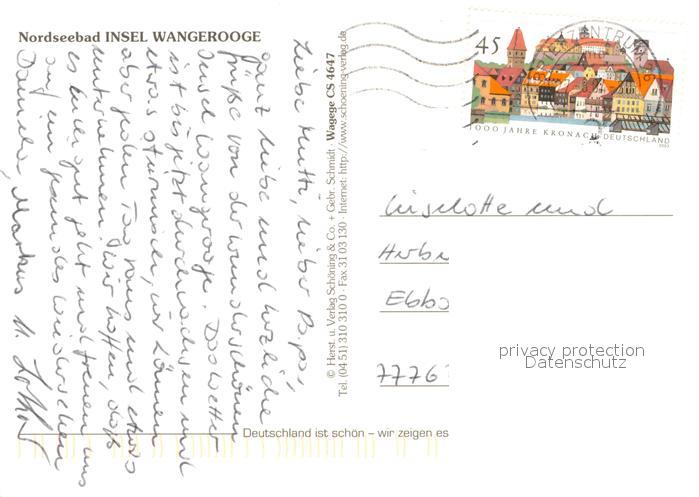 Nordseebad INSEL WANGEROOGE
Liebe Mutti, lieber Papi,
ganz liebe und herzliche
Grüße von der wunderschönen
Insel Wangerooge. Das Wetter
ist bis jetzt durchwachsen und
etwas stürmisch, wir können
aber jeden Tag raus und etwas
unternehmen. Wir hoffen, daß
es euch gut geht und freuen uns
auf ein gesundes Wiedersehen
Daniela, Markus u.
© Herst. u. Verlag Schöning & Co. + Gebr. Schmidt · Wagege CS 4647
Tel. (04 51) 310 310 0 · Fax 31 03 130 · Internet: http://www.schoening-verlag.de
45
1000 JAHRE KRONACH DEUTSCHLAND
Liselotte und
Deutschland ist schön – wir zeigen es
privacy protection
Datenschutz